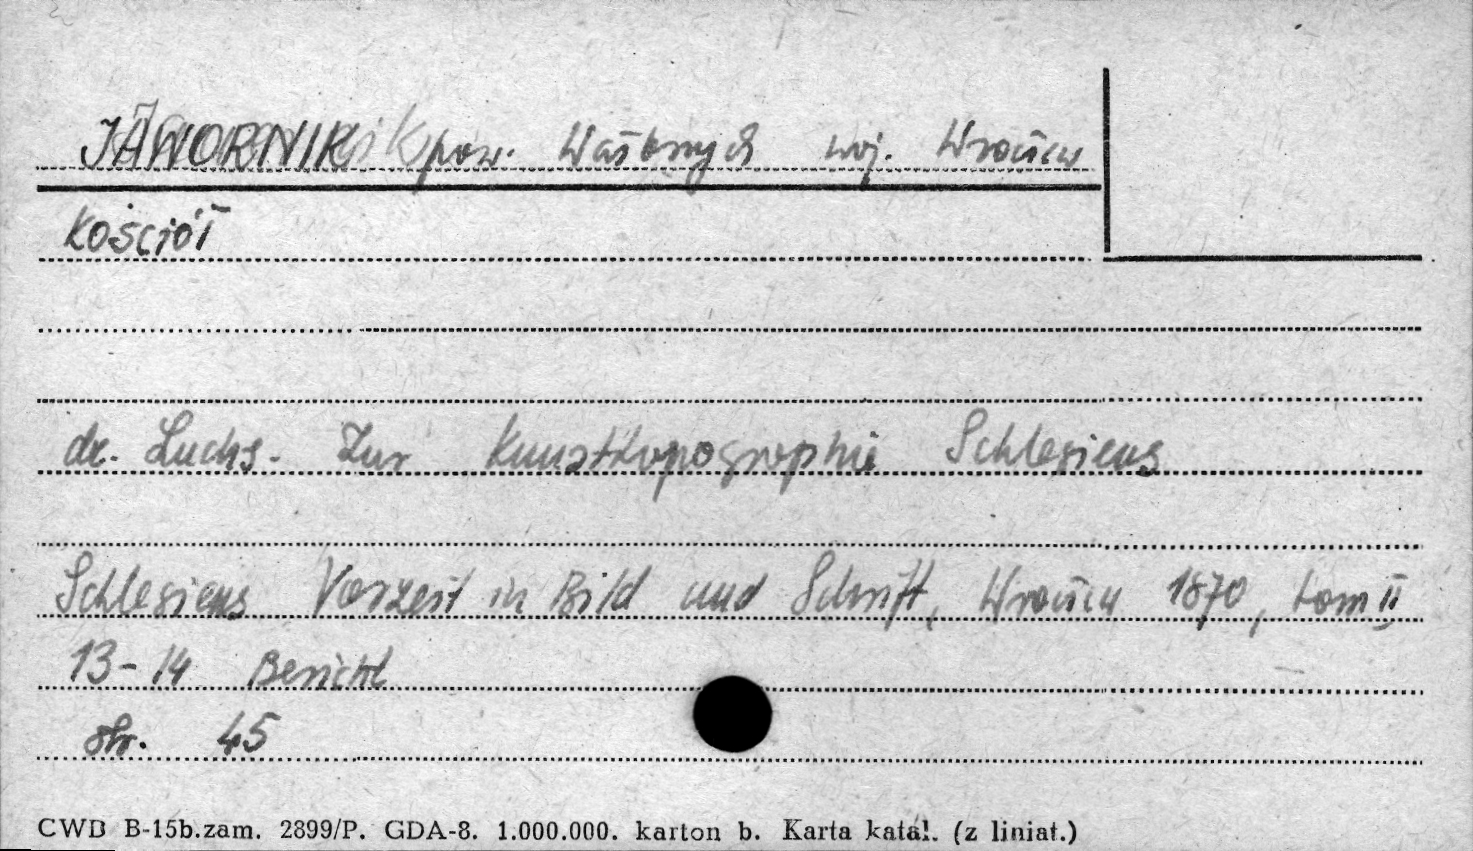 JAWORNIK pow. Wałbrzych woj. Wrocław
Kościół
dr. Luchs. Zur Kunsttopographie Schlesiens
Schlesiens Vorzeit in Bild und Schrift, Wrocław 1870, tom II
13-14 Bericht
str. 45
CWD B-15b.zam. 2899/P. GDA-8. 1.000.000. karton b. Karta katal. (z liniat.)